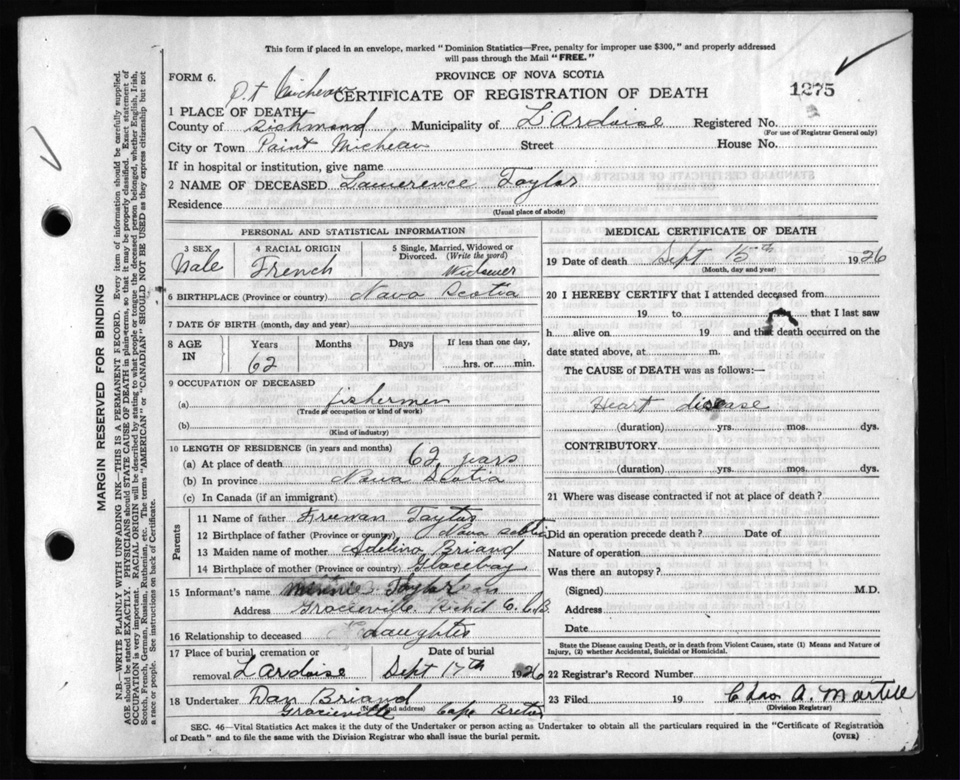 This form if placed in an envelope, marked "Dominion Statistics—Free, penalty for improper use $300," and properly addressed
will pass through the Mail "FREE."
FORM 6.
PROVINCE OF NOVA SCOTIA
P.t Micheau
CERTIFICATE OF REGISTRATION OF DEATH
1275
1 PLACE OF DEATH
County of Richmond Municipality of L'Ardoise Registered No.
(For use of Registrar General only)
City or Town Paint Micheau Street House No.
If in hospital or institution, give name
2 NAME OF DECEASED Lawerence Taylor
Residence
(Usual place of abode)
PERSONAL AND STATISTICAL INFORMATION
3 SEX 4 RACIAL ORIGIN 5 Single, Married, Widowed or
Divorced. (Write the word)
Male French Widower
6 BIRTHPLACE (Province or country) Nova Scotia
7 DATE OF BIRTH (month, day and year)
8 AGE IN Years Months Days If less than one day,
62 hrs. or min.
9 OCCUPATION OF DECEASED
(a) fishermen
(Trade occupation or kind of work)
(b)
(Kind of industry)
10 LENGTH OF RESIDENCE (in years and months)
(a) At place of death 62 years
(b) In province Nova Scotia
(c) In Canada (if an immigrant)
Parents
11 Name of father Taytor
12 Birthplace of father (Province or country) Nova scotia
13 Maiden name of mother Adelina Briand
14 Birthplace of mother (Province or country) Glacebay
15 Informant's name Minnie Taylor
Address Gracieville Richd C. C.B.
16 Relationship to deceased daughter
17 Place of burial, cremation or Date of burial
removal L'Ardoise Sept 17th 1926
18 Undertaker Dan Briand
(Name and address)
Gracieville Cape Breton
MEDICAL CERTIFICATE OF DEATH
19 Date of death Sept 15th 1926
(Month, day and year)
20 I HEREBY CERTIFY that I attended deceased from
19 to that I last saw
h alive on 19 and that death occurred on the
date stated above, at m.
The CAUSE of DEATH was as follows:—
Heart disease
(duration) yrs. mos. dys.
CONTRIBUTORY
(duration) yrs. mos. dys.
21 Where was disease contracted if not at place of death?
Did an operation precede death? Date of
Nature of operation
Was there an autopsy?
(Signed) M.D.
Address
Date
State the Disease causing Death, or in death from Violent Causes, state (1) Means and Nature of
Injury, (2) whether Accidental, Suicidal or Homicidal.
22 Registrar's Record Number
23 Filed 19 Chas A. Martell
(Division Registrar)
SEC. 46—Vital Statistics Act makes it the duty of the Undertaker or person acting as Undertaker to obtain all the particulars required in the "Certificate of Registration
of Death" and to file the same with the Division Registrar who shall issue the burial permit.
(OVER)
MARGIN RESERVED FOR BINDING
N.B.—WRITE PLAINLY WITH UNFADING INK—THIS IS A PERMANENT RECORD. Every item of information should be carefully supplied.
AGE should be stated EXACTLY. PHYSICIANS should STATE CAUSE OF DEATH in plain terms, so that it may be properly classified. Exact statement of
OCCUPATION is very important. RACIAL ORIGIN will be described by stating to what people or tongue the deceased person belonged, whether English, Irish,
Scotch, French, German, Russian, Ruthenian, etc. The terms "AMERICAN" or "CANADIAN" SHOULD NOT BE USED as they express citizenship but not
a race or people. See instructions on back of Certificate.